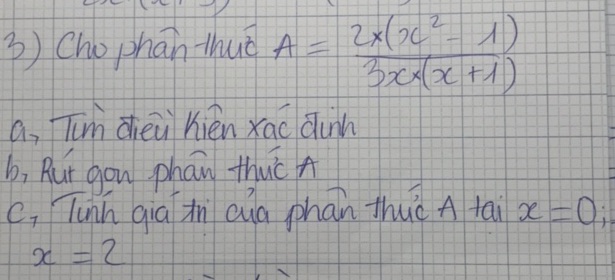 3) Cho phân thức A = 2×(x² - 1) / 3x×(x + 1)
a, Tìm điều kiện xác định
b, Rút gọn phân thức A
c, Tính giá trị của phân thức A tại x = 0;
x = 2